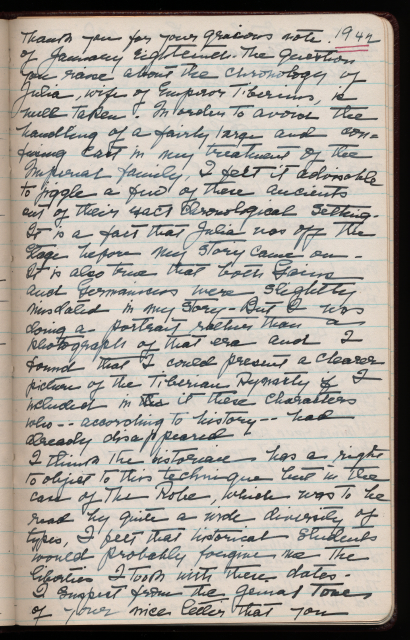 Thank you for your gracious note 1942
of January eighteenth. The question
you raise about the chronology of
Julia, wife of Emperor Tiberius, is
well taken. In order to avoid the
handling of a fairly large and con=
fusing cast in my treatment of the
Imperial family, I felt it advisable
to joggle a few of these ancients
out of their exact Chronological Setting-
It is a fact that Julia was off the
stage before my Story came on -
It is also true that both Gaius
and Germanicus were slightly
misdated in my Story - But I was
doing a portrait rather than a
photograph of that era and I
found that I could present a clearer
picture of the Tiberian Dynasty if I
included in it these characters
who -- according to history -- had
already disappeared
I think the historian has a right
to object to this technique but in the
case of The Robe, which was to be
read by quite a wide diversity of
types, I felt that historical students
would probably forgive me the
liberties I took with these dates
I suspect from the genial tone
of your nice letter that you